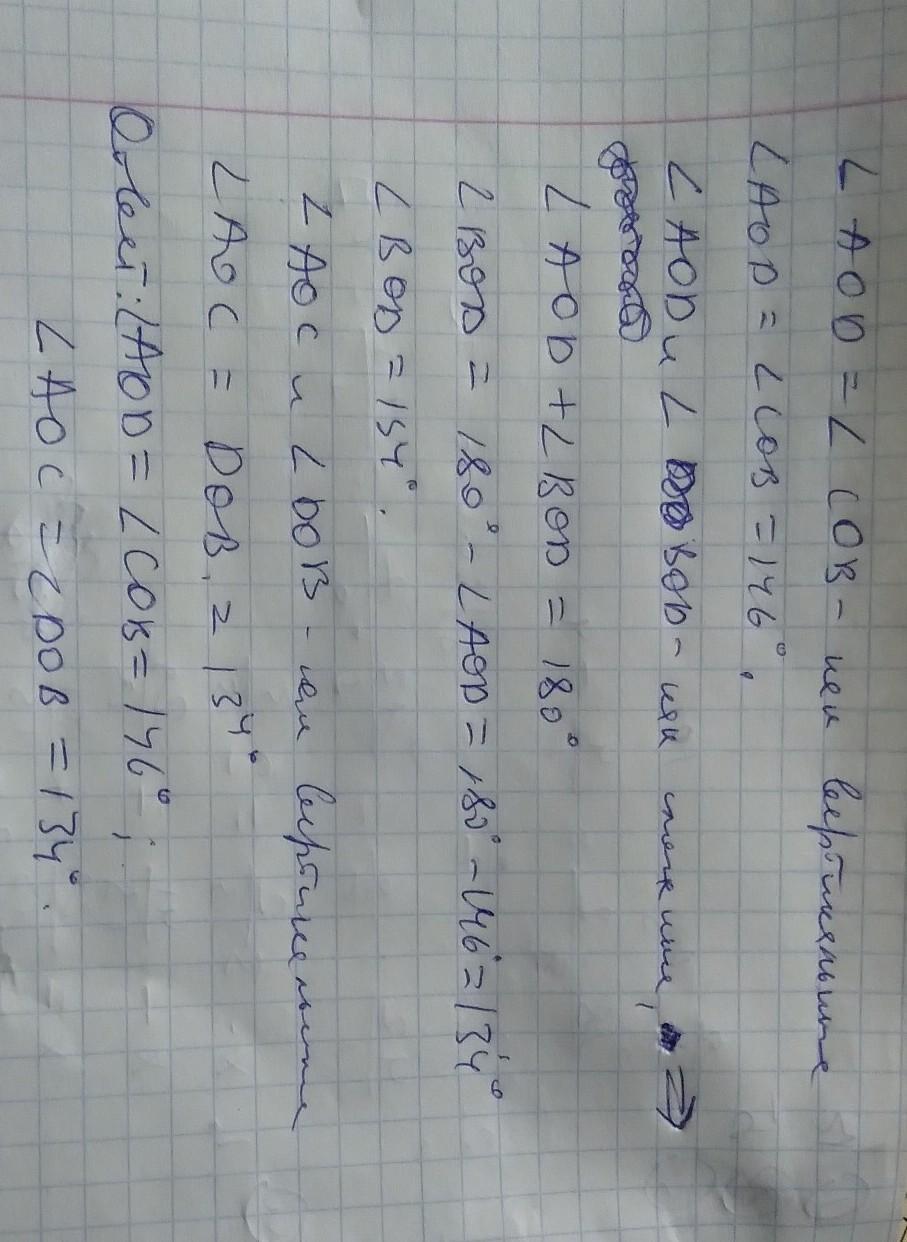 ∠ AOD = ∠ COB - как вертикальные
∠AOD = ∠COB = 146°.
∠ AOD и ∠ BOD - как смежные, ⇒
∠ AOD + ∠ BOD = 180°
∠ BOD = 180° - ∠AOD = 180° - 146° = 134°
∠ BOD = 134°.
∠ AOC и ∠ DOB - как вертикальные
∠ AOC = DOB. = 134°
Ответ: ∠AOD = ∠COB = 146°;
∠ AOC = ∠DOB = 134°.